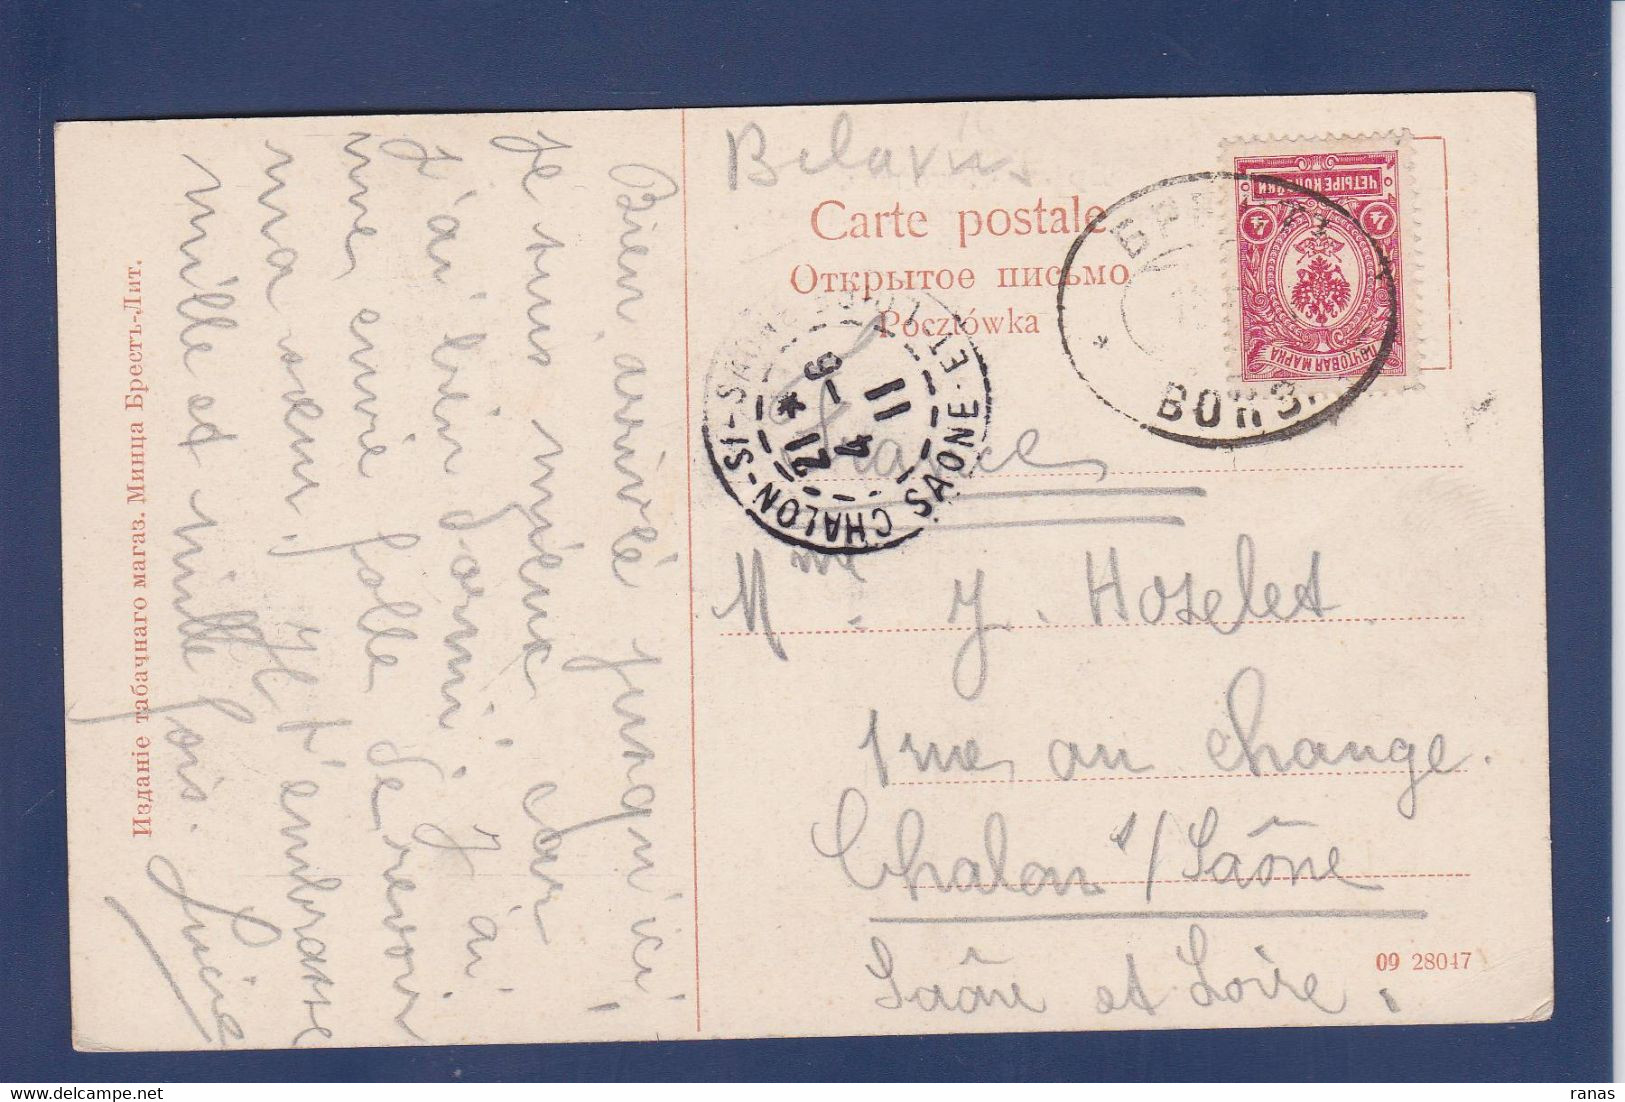 Belarus
Carte postale
Открытое письмо
Pocztówka
ЧЕТЫРЕ КОПѢЙКИ
4 4
ПОЧТОВАЯ МАРКА
ВОКЗ.
CHALON-SR-SAONE
SAONE-ET-LOIRE
21 * 6
4
11
France
Mme J. Hoselet
1 rue au Change.
Chalon s/Saône
Saône et Loire.
09 28047
Bien arrivé jusqu'ici,
je suis mieux car
j'ai bien dormi. J'ai
une envie folle de revoir
ma sœur. Je t'embrasse
mille et mille fois.
Изданіе табачнаго магаз. Минца Брестъ-Лит.
ranas